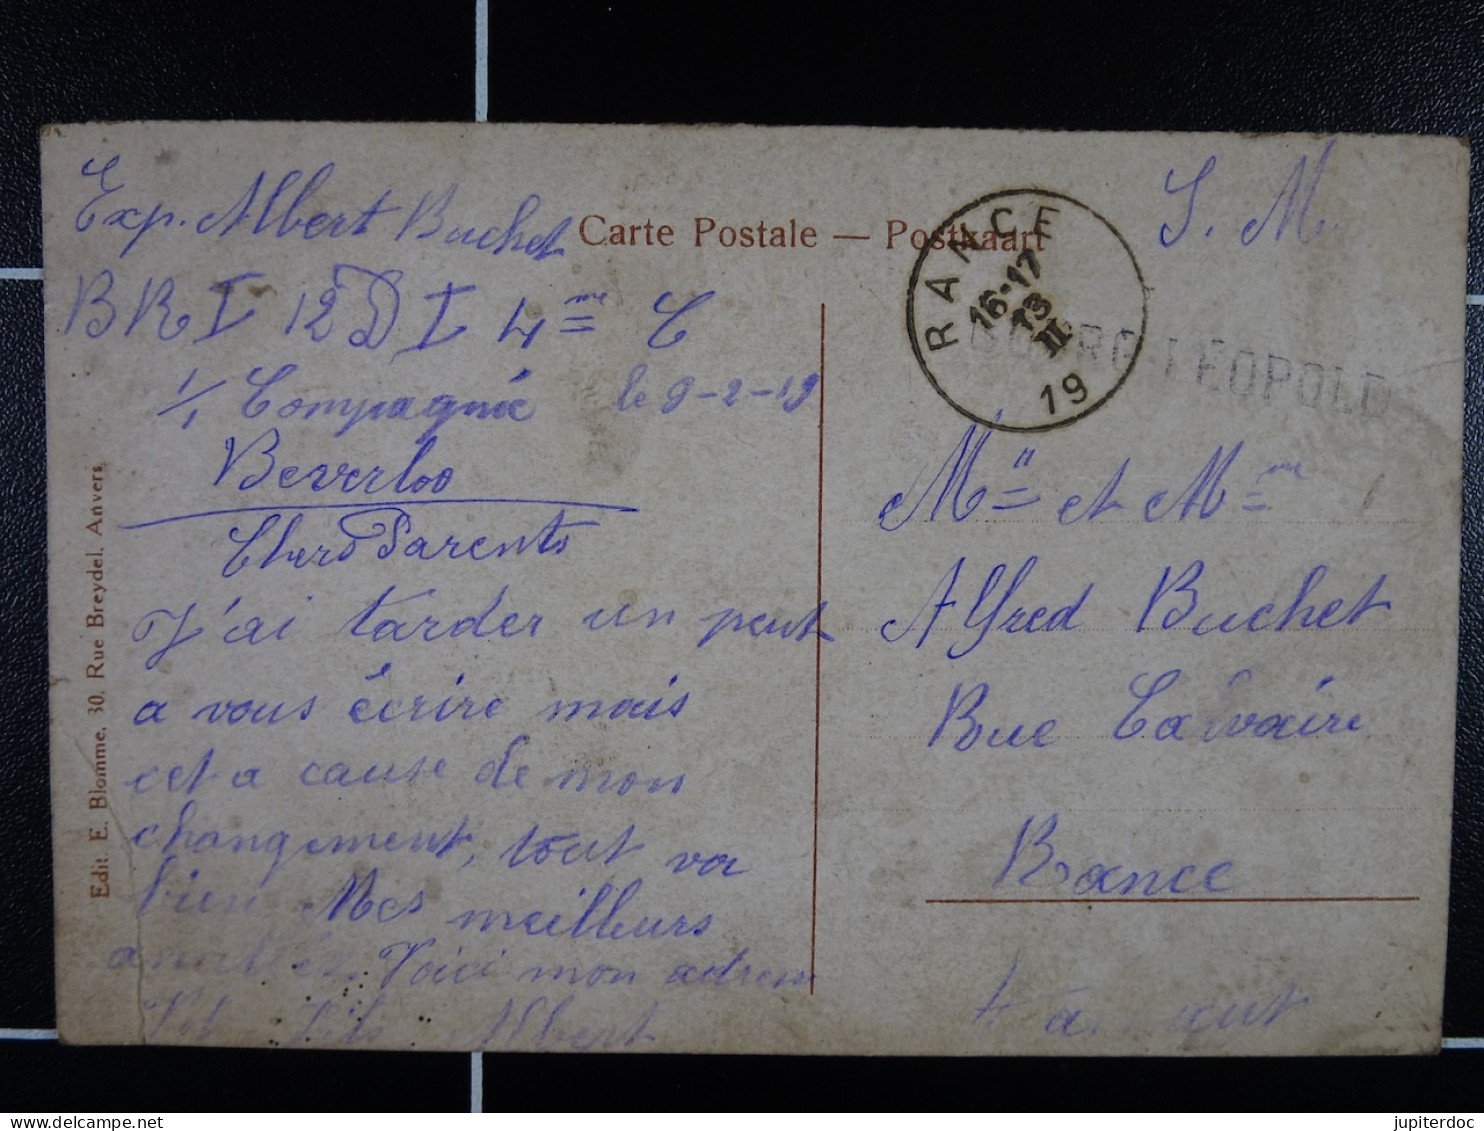 Exp. Albert Buchet
BRI 12 DI 4me C
1/1 Compagnie le 9-2-19
Beverloo
Chers Parents
J'ai tarder un peut
a vous écrire mais
cet a cause de mon
changement, tout va
bien Mes meilleurs
amitiés. Voici mon adress
Albert
Carte Postale — Postkaart
Edit. E. Blomme, 30. Rue Breydel. Anvers
RANCE
16-17
13
II
19
BOURG-LEOPOLD
S. M.
Mr et Mme
Alfred Buchet
Rue Calvaire
Rance
jupiterdoc